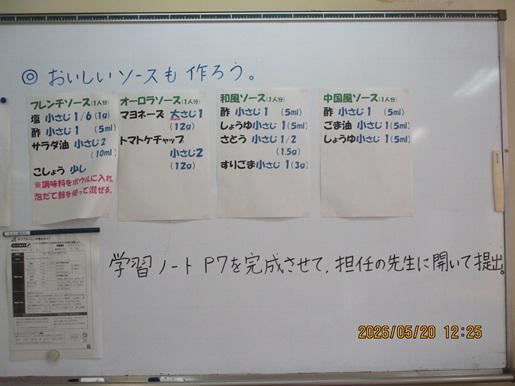 ◎ おいしいソースも作ろう。
フレンチソース(1人分)
塩 小さじ1/6(1g)
酢 小さじ1 (5ml)
サラダ油 小さじ2
(10ml)
こしょう 少し
※調味料をボウルに入れ、
泡だて器を使って混ぜる。
オーロラソース(1人分)
マヨネーズ 大さじ1
(12g)
トマトケチャップ
小さじ2
(12g)
和風ソース(1人分)
酢 小さじ1 (5ml)
しょうゆ小さじ1(5ml)
さとう 小さじ1/2
(1.5g)
すりごま小さじ1(3g)
中国風ソース(1人分)
酢 小さじ1 (5ml)
ごま油 小さじ1(5ml)
しょうゆ小さじ1(5ml)
学習ノートP7を完成させて、担任の先生に開いて提出。
2026/05/20 12:25